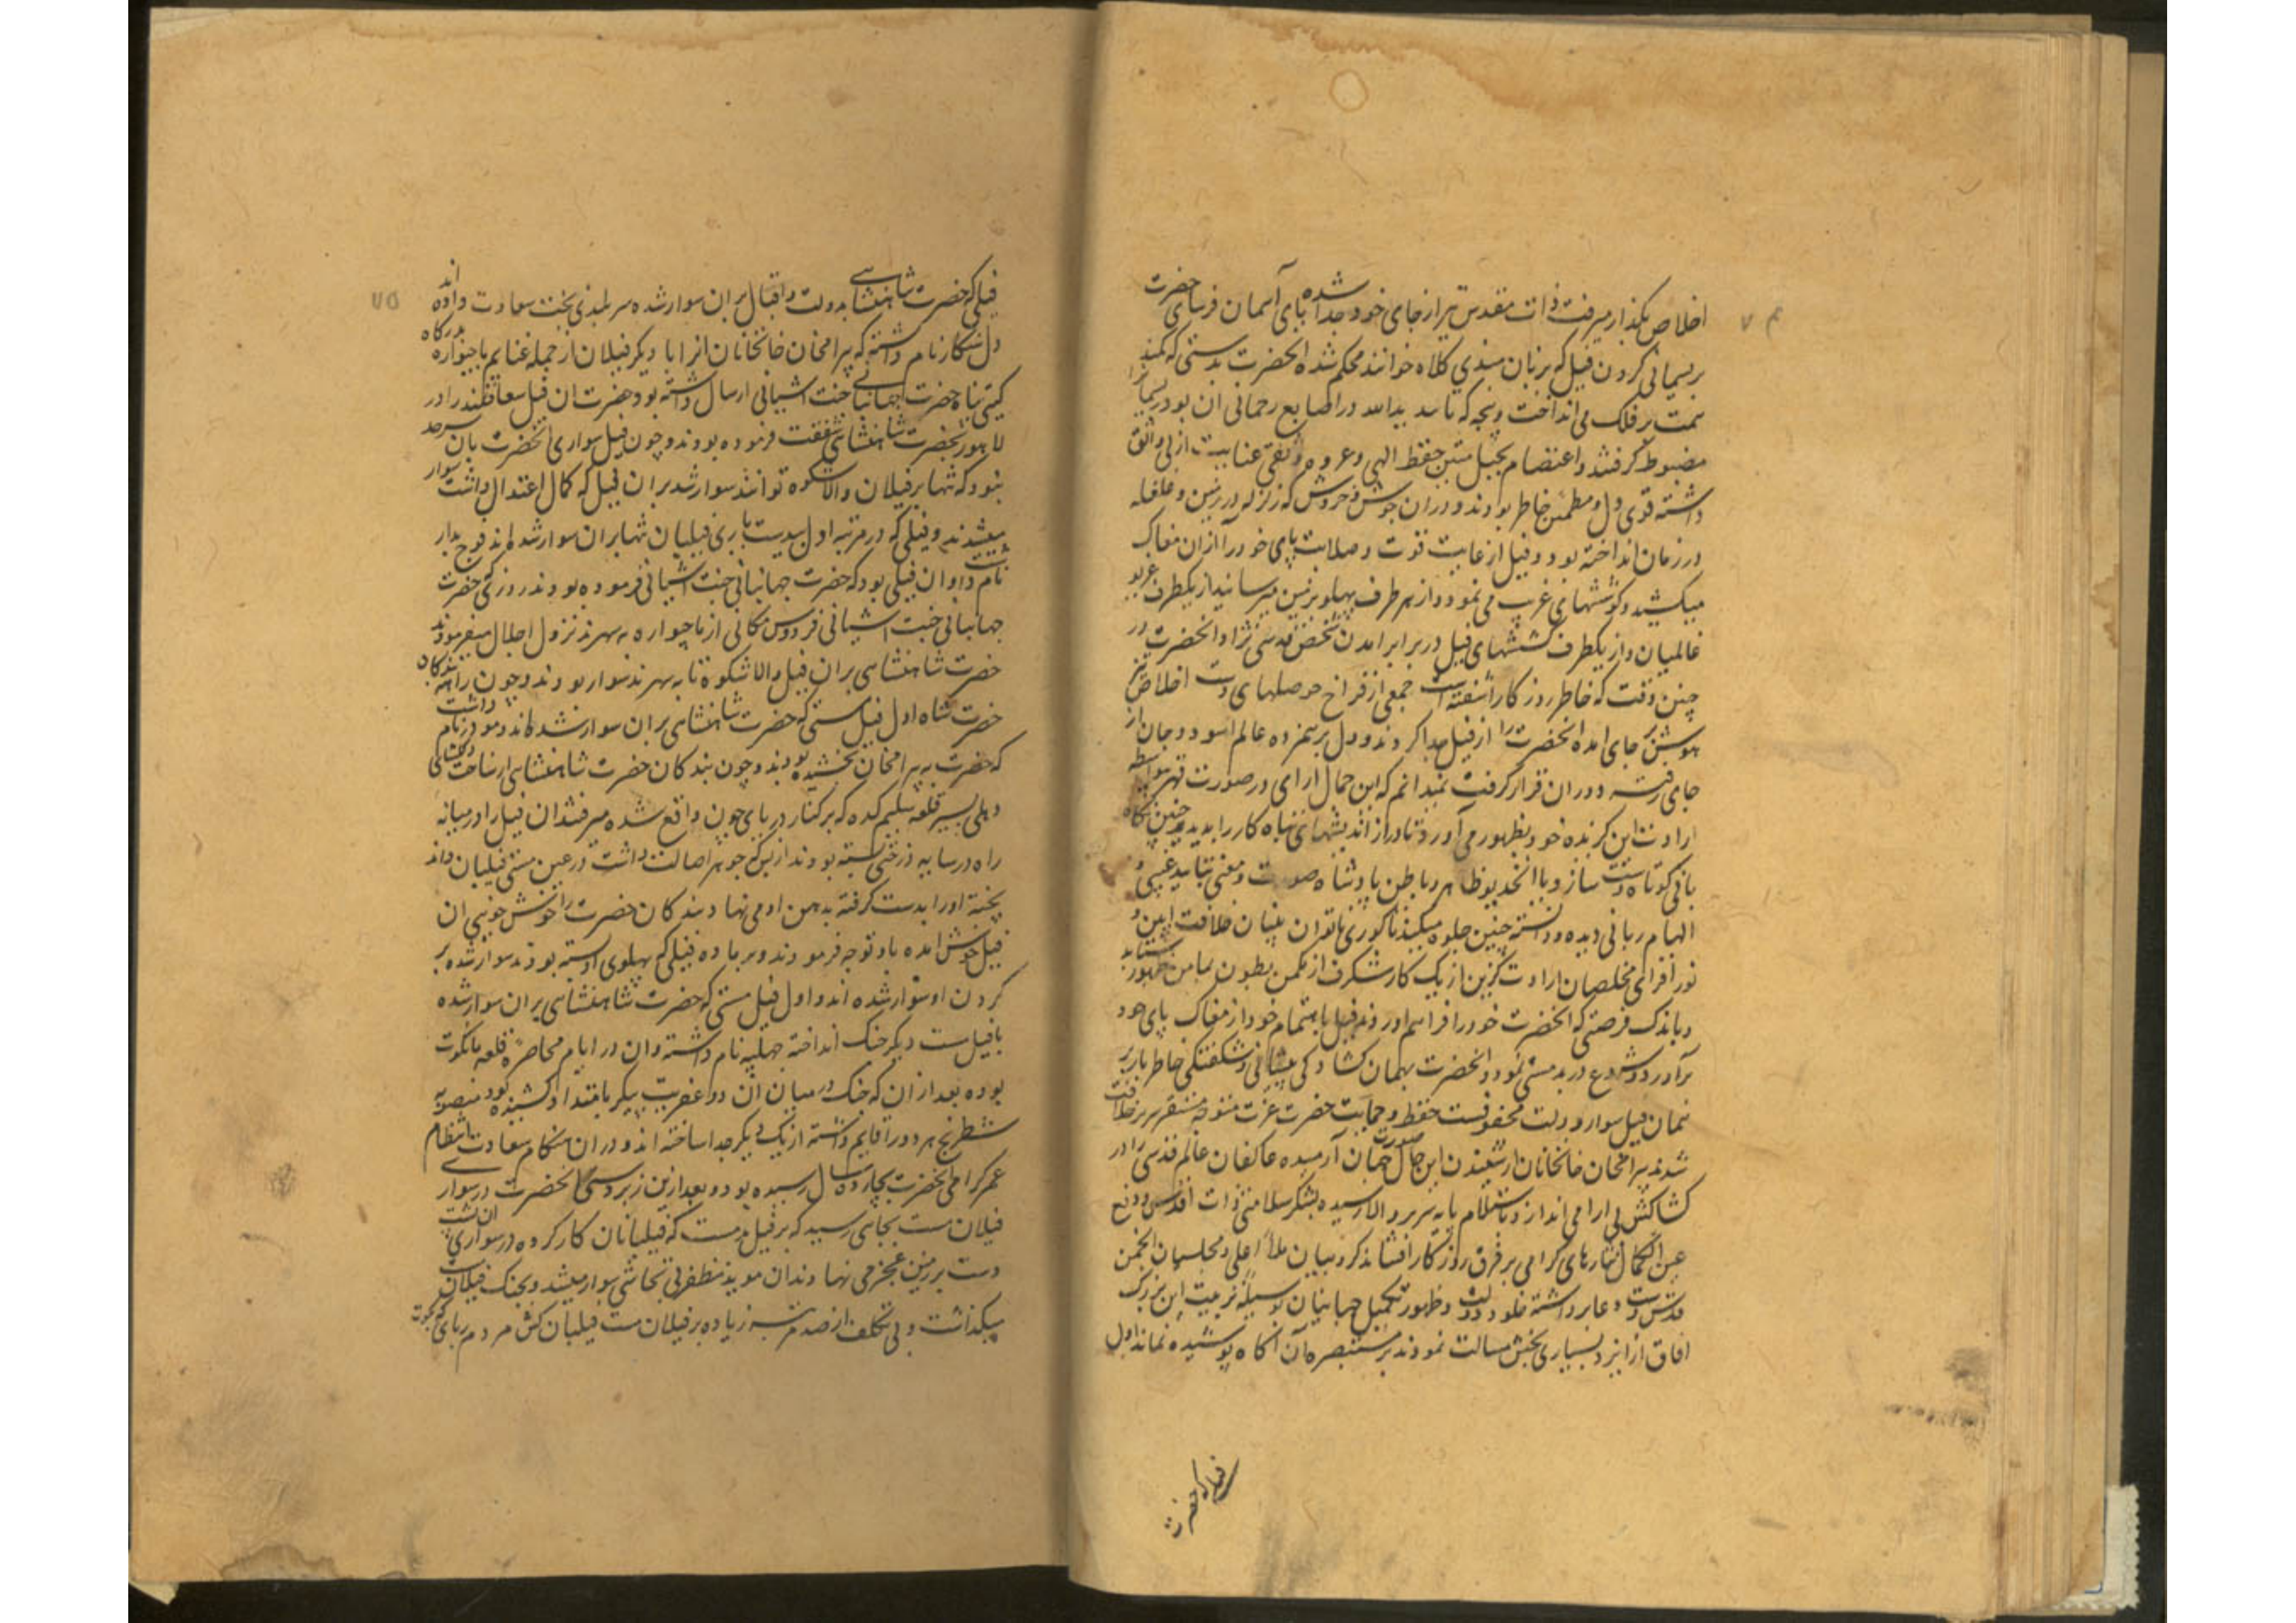 ۷۴
اخلاص بکذار میرفت ذات مقدس تیر از جای خود جدا شده پای آسمان فرسای حضرت
بریسمانی کردن فیل که بزبان هندی کلاوه خوانند محکم شده انحضرت بدستی که کمند
همت بر فلک می انداخت و پنجه که تایید یدالله در اصابع رحمانی ان بود ریسمانرا
مضبوط گرفتند و اعتصام بحبل متین حفظ الهی و عروه وثقی عنایت ازلی واثق
داشته قوی دل و مطمئن خاطر بودند و دران جوش و خروش که زلزله در زمین و غلغله
در زمان انداخته بود و فیل از غایت قوت و صلابت پای خود را ازان مغاک
میکشید و کوششهای غریب می نمود و از هر طرف پهلو بزمین میرسانید از یکطرف غریو
عالمیان و از یکطرف کششهای فیل در برابر امدن شخص قدسی نژاد و انحضرت در
چنین وقت که خاطر روزکار اشفته است جمعی از فراخ حوصلهای دست اخلاص تیز
هوش بر جای امده انحضرت را از فیل جدا کردند و دل بر همزده عالم اسود و جان از
جای رفته دوران قرار گرفت نمیدانم که این جمال ارای در صورت قهر بواسطه
ارادت این کزیده خود بظهور می آورد تا دراز اندیشهای تباه کار را بدیدن چنین نگاه
بانی کوتاه دست سازد یا انخدیو ظاهر و باطن پادشاه صورت و معنی بتایید غیبی و
الهام ربانی دیده و دانسته چنین جلوه میکند تا کوری ناتوان بینان خلافت ایین و
نور افزای مخلصان ارادت گزین از یک کار شگرف از مکمن بطون بمامن ظهور شتابد
و باندک فرصتی که انحضرت خود را فراهم اوردند فیل باهتمام خود از مغاک پای خود
برآورد و شروع در بدمستی نمود و انحضرت بهمان کشادگی پیشانی و شکفتگی خاطر باز بر
همان فیل سوار و دولت محفوفست حفظ و حمایت حضرت عزت متوجه مستقر سریر خلافت
شدند بیرامخان خانخانان از شنیدن این حال صورت جهان آرمیده عاکفان عالم قدسی را در
کشاکش بی ارامی اندازد باستلام پایه سریر والا رسیده بشکر سلامتی ذات اقدس و دفع
عین الکمال نثارهای کرامی بر فرق روزکار افشاند کروبیان ملأ اعلی و مجلسیان انجمن
قدس دست دعا برداشته خلود دولت و ظهور تکمیل جهانیان بوسیله تربیت این بزرگ
افاق از ایزد بسیاری بخش مسالت نمودند بر مستبصره آن اکاه پوشیده نماند اول
فیلی که حضرت
۷۵
فیلی که حضرت شاهنشاهی بدولت و اقبال بران سوار شده سر بلندی بخت سعادت داده اند
دل شنکار نام داشته که بیرامخان خانخانان انرا با دیکر فیلان از جمله غنایم باچیواره بدرکاه
کیتی پناه حضرت جهانبانی جنت اشیانی ارسال داشته بود حضرت ان فیل سعادتمند را در
لاهور بحضرت شاهنشاهی شفقت فرموده بودند و چون فیل سواری انحضرت بان سرحد
نبود که تنها بر فیلان والا شکوه توانند سوار شد بران فیل که کمال اعتدال داشت سوار
میشدند و فیلی که در مرتبه اول بدست یاری فیلبان تنها بران سوار شده اند فوج بدار
نام داشت و ان فیلی بود که حضرت جهانبانی جنت اشیانی فرموده بودند روزی که حضرت
جهانبانی جنت اشیانی فردوس مکانی از ماچیواره به سهرند نزول اجلال میفرمودند
حضرت شاهنشاهی بران فیل والا شکوه تا به سهرند سوار بودند و چون
حضرت شاه اول فیل مستی که حضرت شاهنشاهی بران سوار شده اند دمودر نام داشت
که حضرت به بیرامخان بخشیده بودند و چون بندکان حضرت شاهنشاهی از ساحت دلکشای
دهلی بسیر قلعه سلیم کده که بر کنار دریای جون واقع شده میرفتند ان فیل را در میانه
راه در سایه درختی بسته بودند ازین که جوهر اصالت داشت در عین مستی فیلبان دانه
پخته او را بدست گرفته بدهن او می نهاد بندکان حضرت را خوش خویی ان
فیل خوش امده باو توجه فرمودند و بر ماده فیلی که پهلوی او بسته بودند سوار شده بر
کردن او سوار شده اند و اول فیل مستی که حضرت شاهنشاهی بران سوار شده
با فیل مست دیکر جنک انداخته جهلپه نام داشته و ان در ایام محاصره قلعه مانکوت
بوده بعد از ان که جنک در میان ان دو عفریت پیکر بامتداد کشیده بود منصوبه
شطرنج هر دو را قایم داشته از یک دیکر جدا ساخته اند و دران هنکام سعادت انتظام
عمر کرامی انحضرت بچارده سال رسیده بود و بعد ازین زبردستی انحضرت در سواری
فیلان مست بجای رسید که بر فیل بدمست که فیلبانان کار کرده در سواری ان پشت
دست بر زمین عجز می نهادند ان موید مظفر بی تحاشی سوار میشد و بجنک فیلان
میکذاشت و بی تکلف از صد مرتبه زیاده بر فیلان مست فیلبان کش مردم ربای